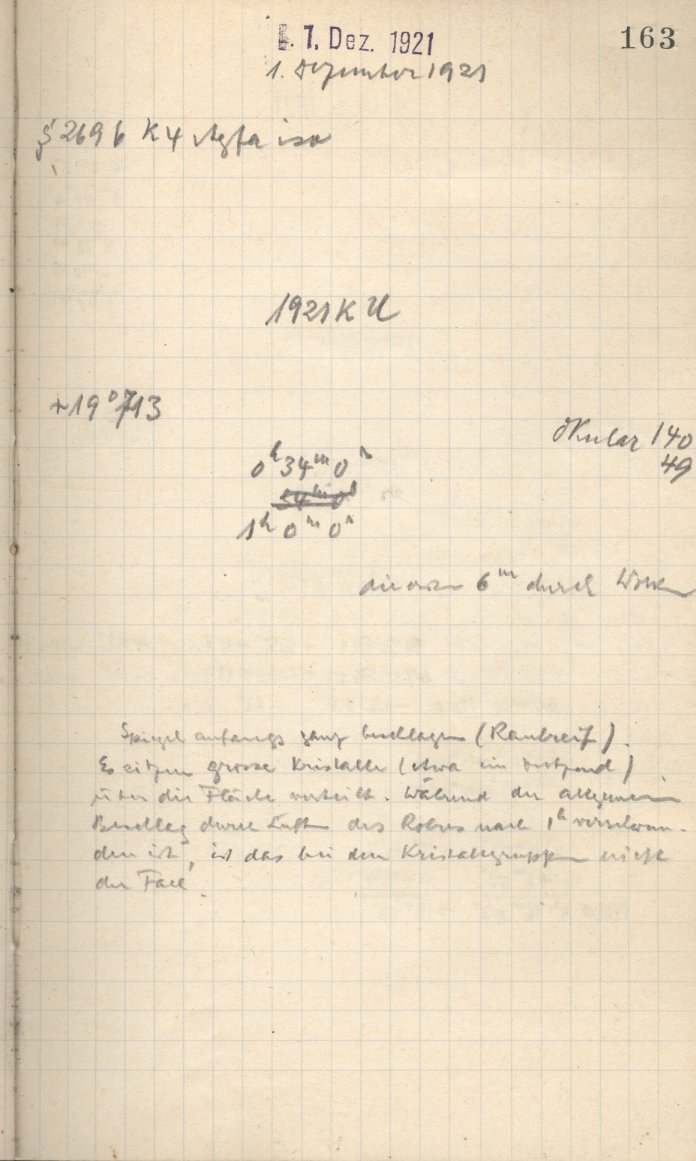 1. Dez. 1921
163
1. Dezember 1921
§ 2696 K4 Agfa iso
1921 KU
+19° 713
Okular 140
49
0ʰ 34ᵐ 0ˢ
34ᵐ 0ˢ
1ʰ 0ᵐ 0ˢ
6ᵐ durch Wolken
Spiegel anfangs ganz beschlagen (Rauhreif).
Es sitzen grosse Kristalle (etwa ein Dutzend)
über die Fläche verteilt. Während der allgemeine
Beschlag durch Lüften des Rohres nach 1ʰ verschwun-
den ist, ist das bei den Kristallgruppen nicht
der Fall.